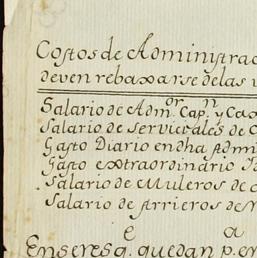 Costos de Administrac
deven rebaxarse de las
Salario de Adm.or Cap.n y Cax
Salario de Servicıales de C
Gasto Diario en dha Admi
Gasto extraordinario I
Salario de Muleros de
Salario de Arrieros de
Enseres q. quedan p. en